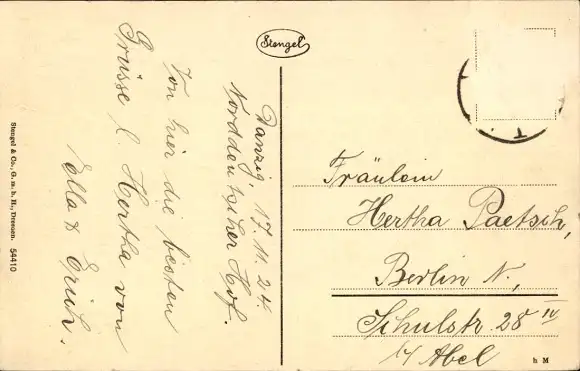 Stengel
Danzig, 17.11.24.
Norddeutscher Hof.
Von hier die besten
Grüsse l. Hertha von
Ella & Erich.
Fräulein
Hertha Paetsch,
Berlin N,
Schulstr. 28 IV
b/ Abel
Stengel & Co., G. m. b. H., Dresden. 54410
h M
T